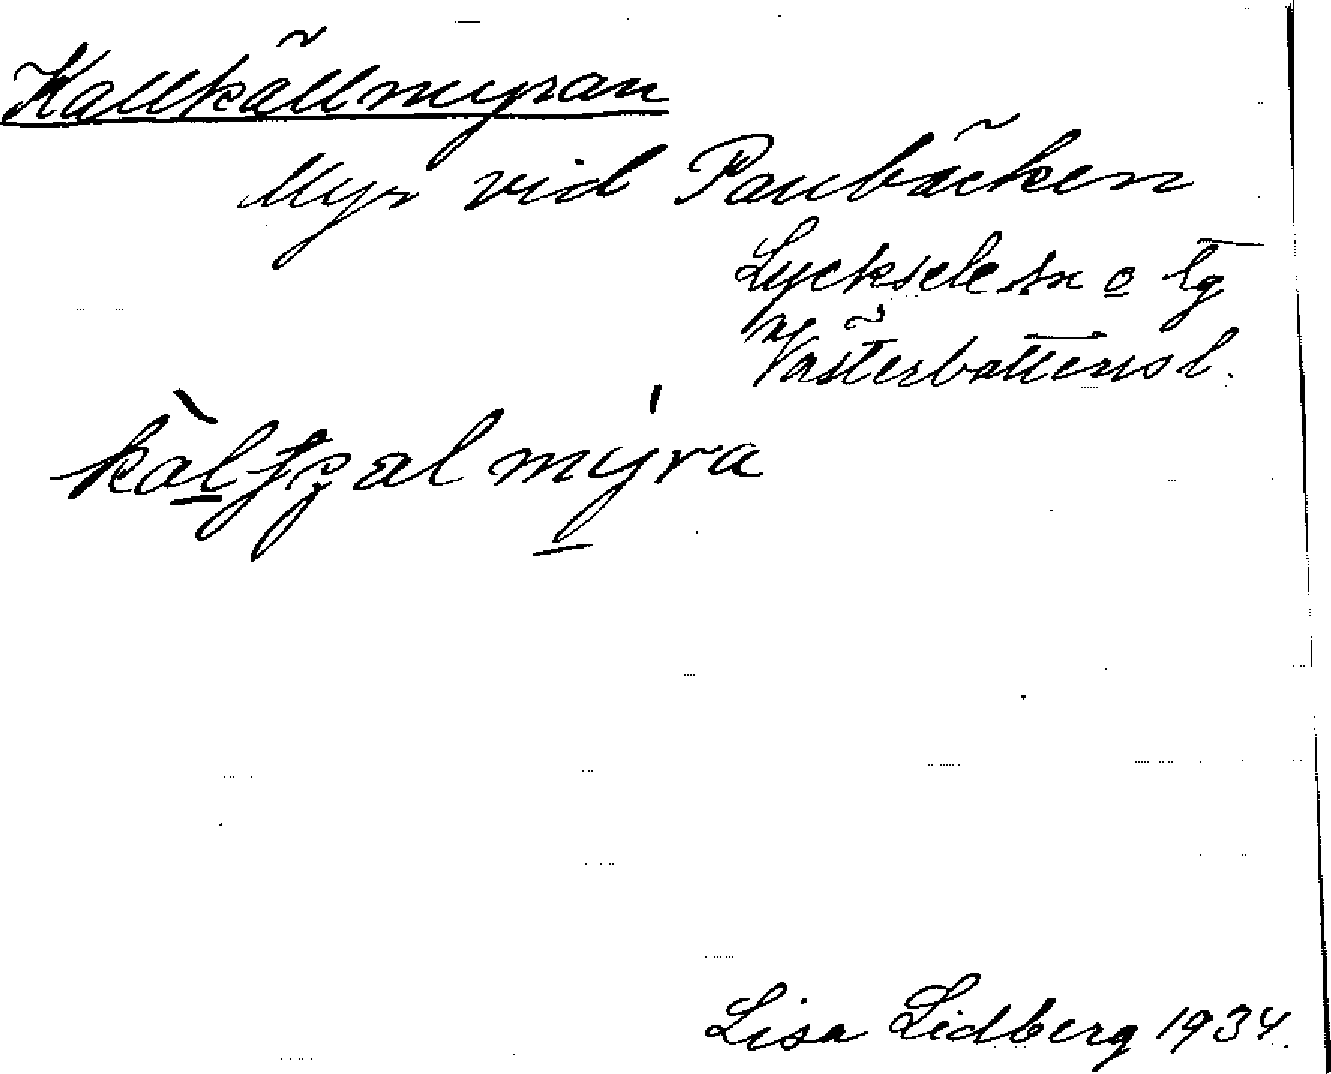 Kallkällmyran
Myr vid Paubäcken
Lycksele sn o tg
Västerbottens l.
Lisa Lidberg 1934.